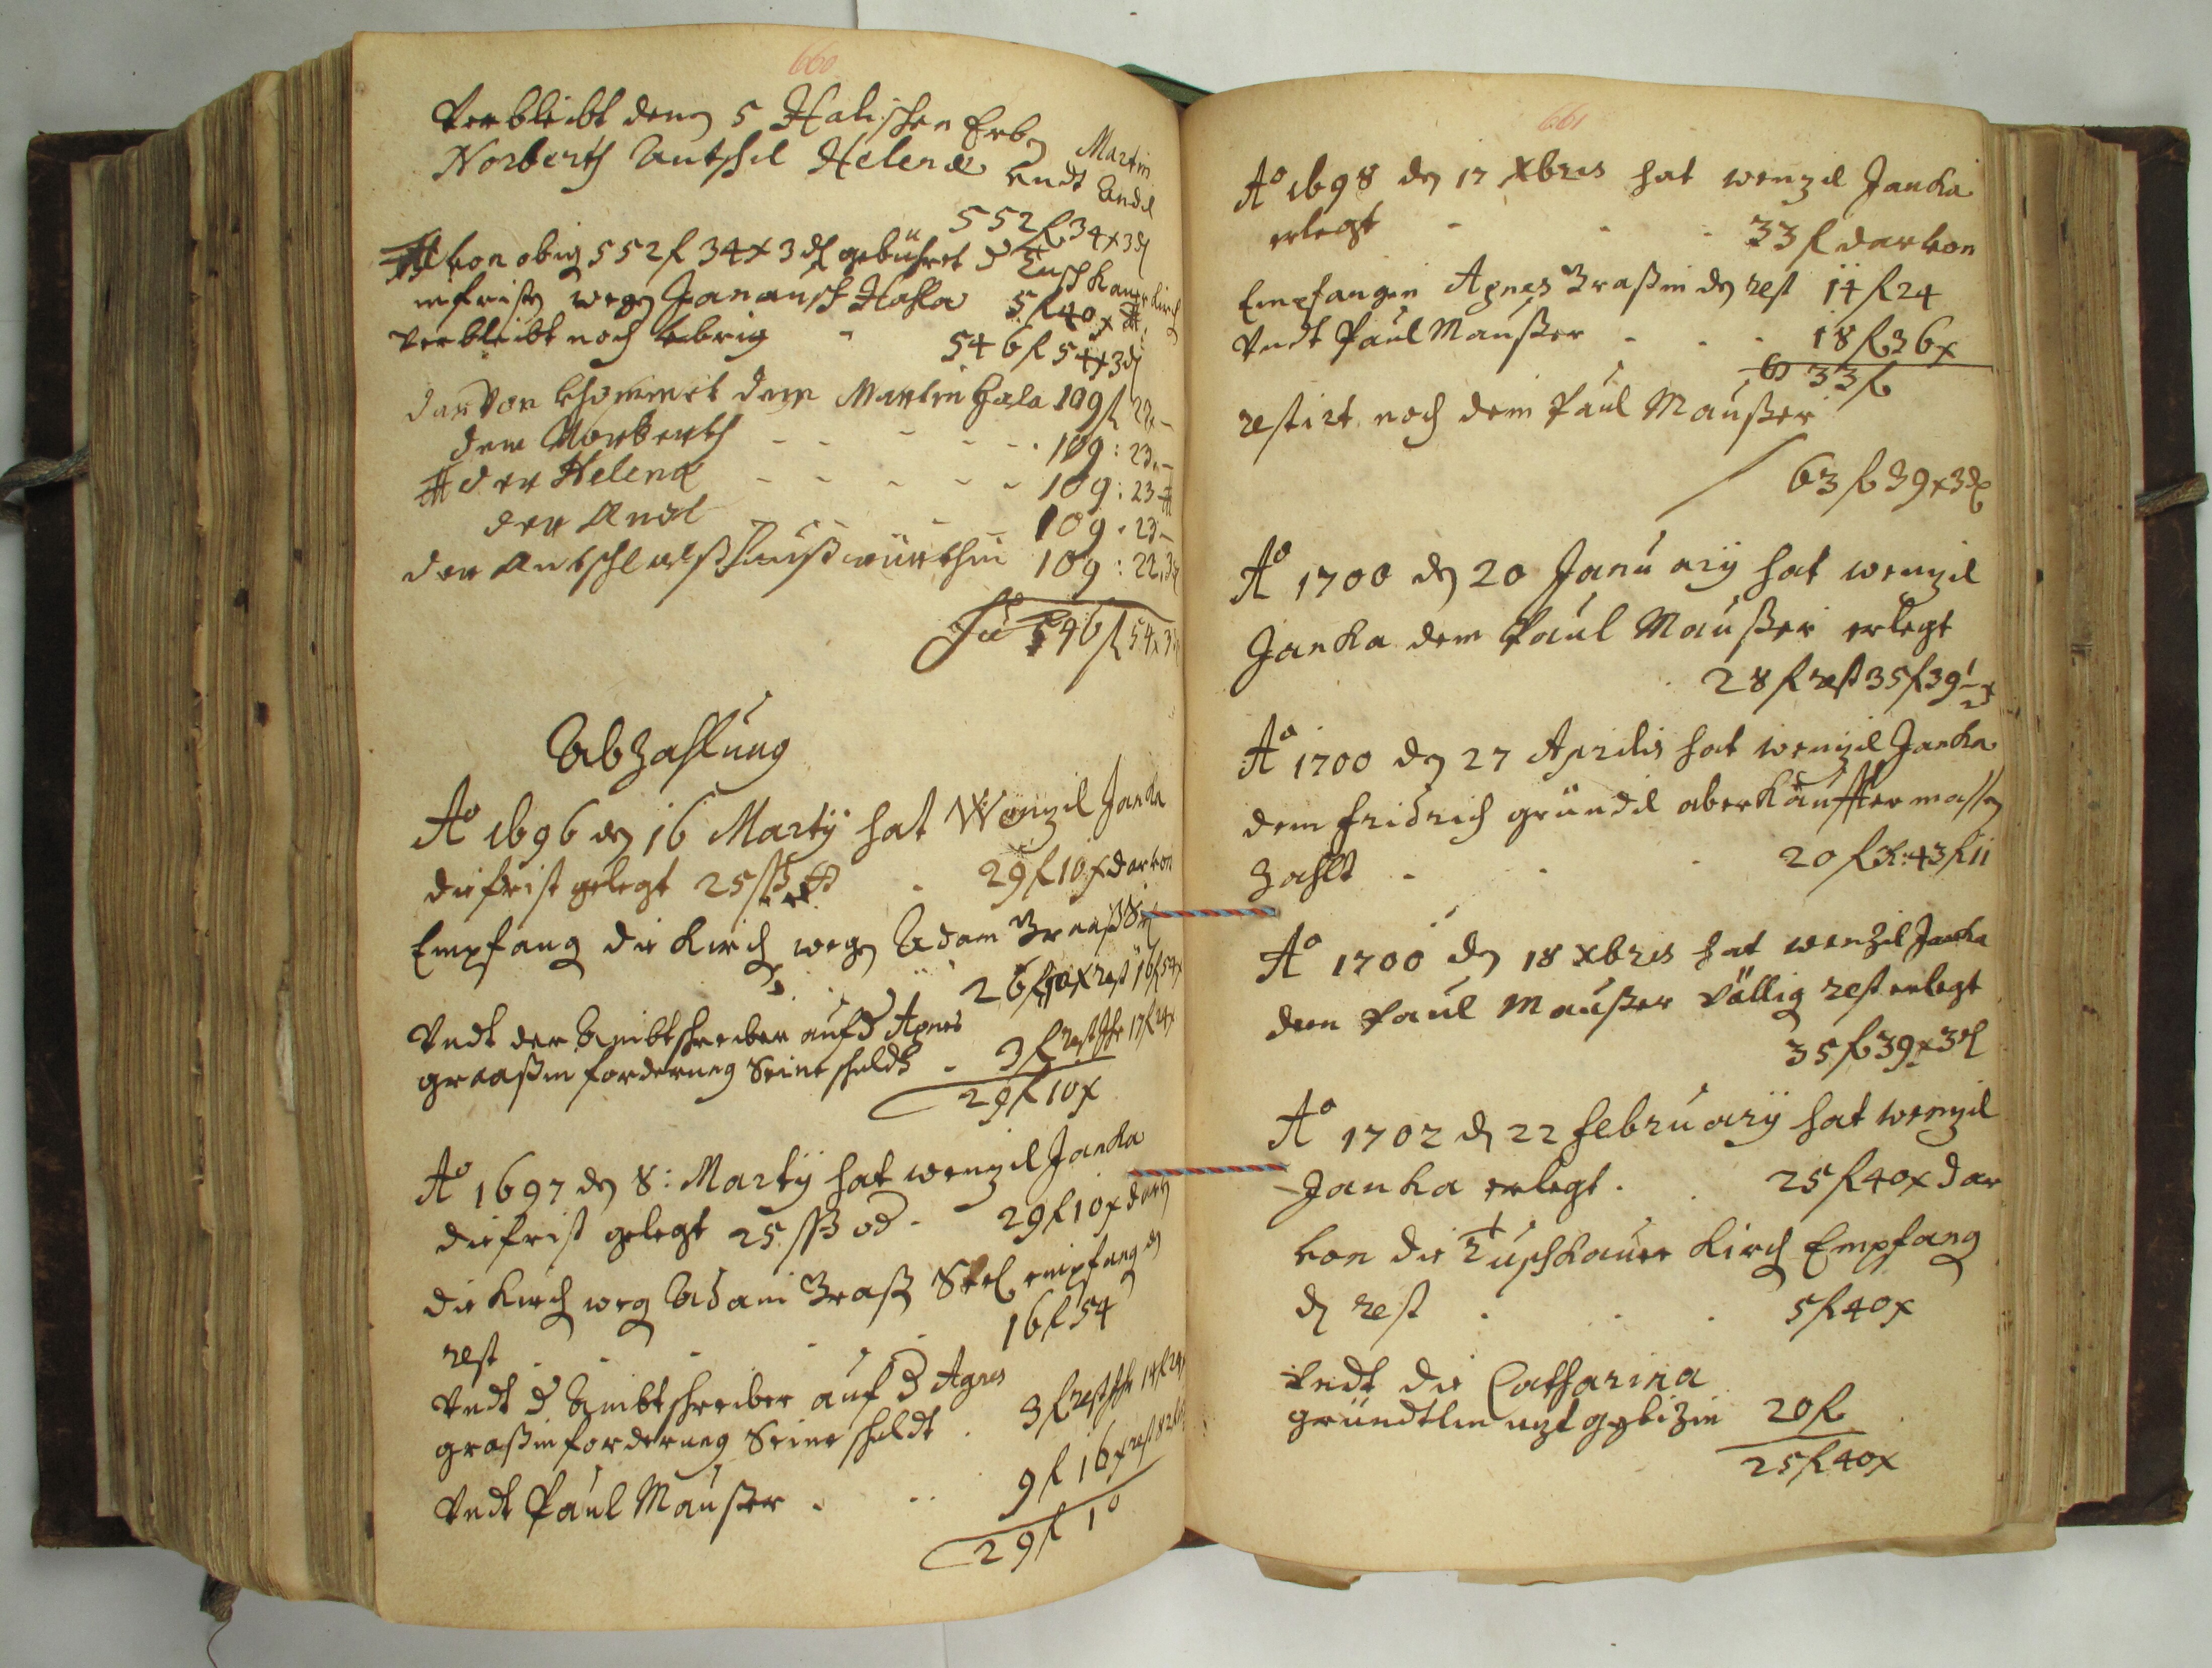 660
Verbleibt denen 5 Halischen Erben Martin
Norberth Antschl Helenæ undt Andl
552 f 34 x 3 d
von obig 552 f 34 x 3 d gebühret d Tuschkauer Kirch
in fristen wegen Hala 5 f 40 x
verbleibt noch übrig - 546 f 54 x 3 d
darvon khommet dem Martin Hala 109 f 22 -
dem Norberth - - - - - 109 : 23 -
der Helena - - - - - 109 : 23
der Andl - - - 109 : 23 -
der Antschl alß Haußwürthin 109 : 22, 3 d
Sa 546 f 54 x 3 d
Abzahlung
Ao 1696 den 16 Martÿ hat Wenzil Janka
die frist gelegt 25 ßß . 29 f 10 x darvon
Empfang die Kirch wegen Adam Graaß Seel
26 f 10 x rest 16 f 54 x
Undt der Ambtschreiber auf d Agnes
graaßin forderung Seine schuldt . 3 f rest ihr 17 f 24 x
29 f 10 x
Ao 1697 den 8: Martÿ hat wenzil Janka
die frist gelegt 25 ßß od . 29 f 10 x darvon
die Kirch weg Adam Graß Seel empfang den
rest . . . 16 f 54
Undt d Ambtschreiber auf d Agnes
graßin forderung Seine schuldt . 3 f rest ihr 14 f 24 x
Undt Paul Maußer . . . 9 f 16 x rest 82 f
29 f 10
661
Ao 1698 den 17 Xbris hat wenzil Janka
erlegt . . . 33 f darvon
Empfangen Agnes Graßin den rest 14 f 24
Undt Paul Maußer . . . 18 f 36 x
33 f
restirt noch dem Paul Maußer
63 f 39 x 3 d
Ao 1700 den 20 Januarÿ hat wenzil
Janka dem Paul Maußer erlegt
28 f rest 35 f 39 1/2 x
Ao 1700 den 27 Aprilis hat wenzil Janka
dem fridrich gründl aberkäuffter massen
zahlt . . . 20 f K: 43 f 11
Ao 1700 den 18 xbris hat wenzil Janka
dem Paul Maußer völlig rest erlegt
35 f 39 x 3 d
Ao 1702 den 22 februarÿ hat wenzil
Janka erlegt . . 25 f 40 x dar
von die Tuschkauer Kirch Empfang
den rest . . . 5 f 40 x
Undt die Catharina
gründtlin 20 f
25 f 40 x